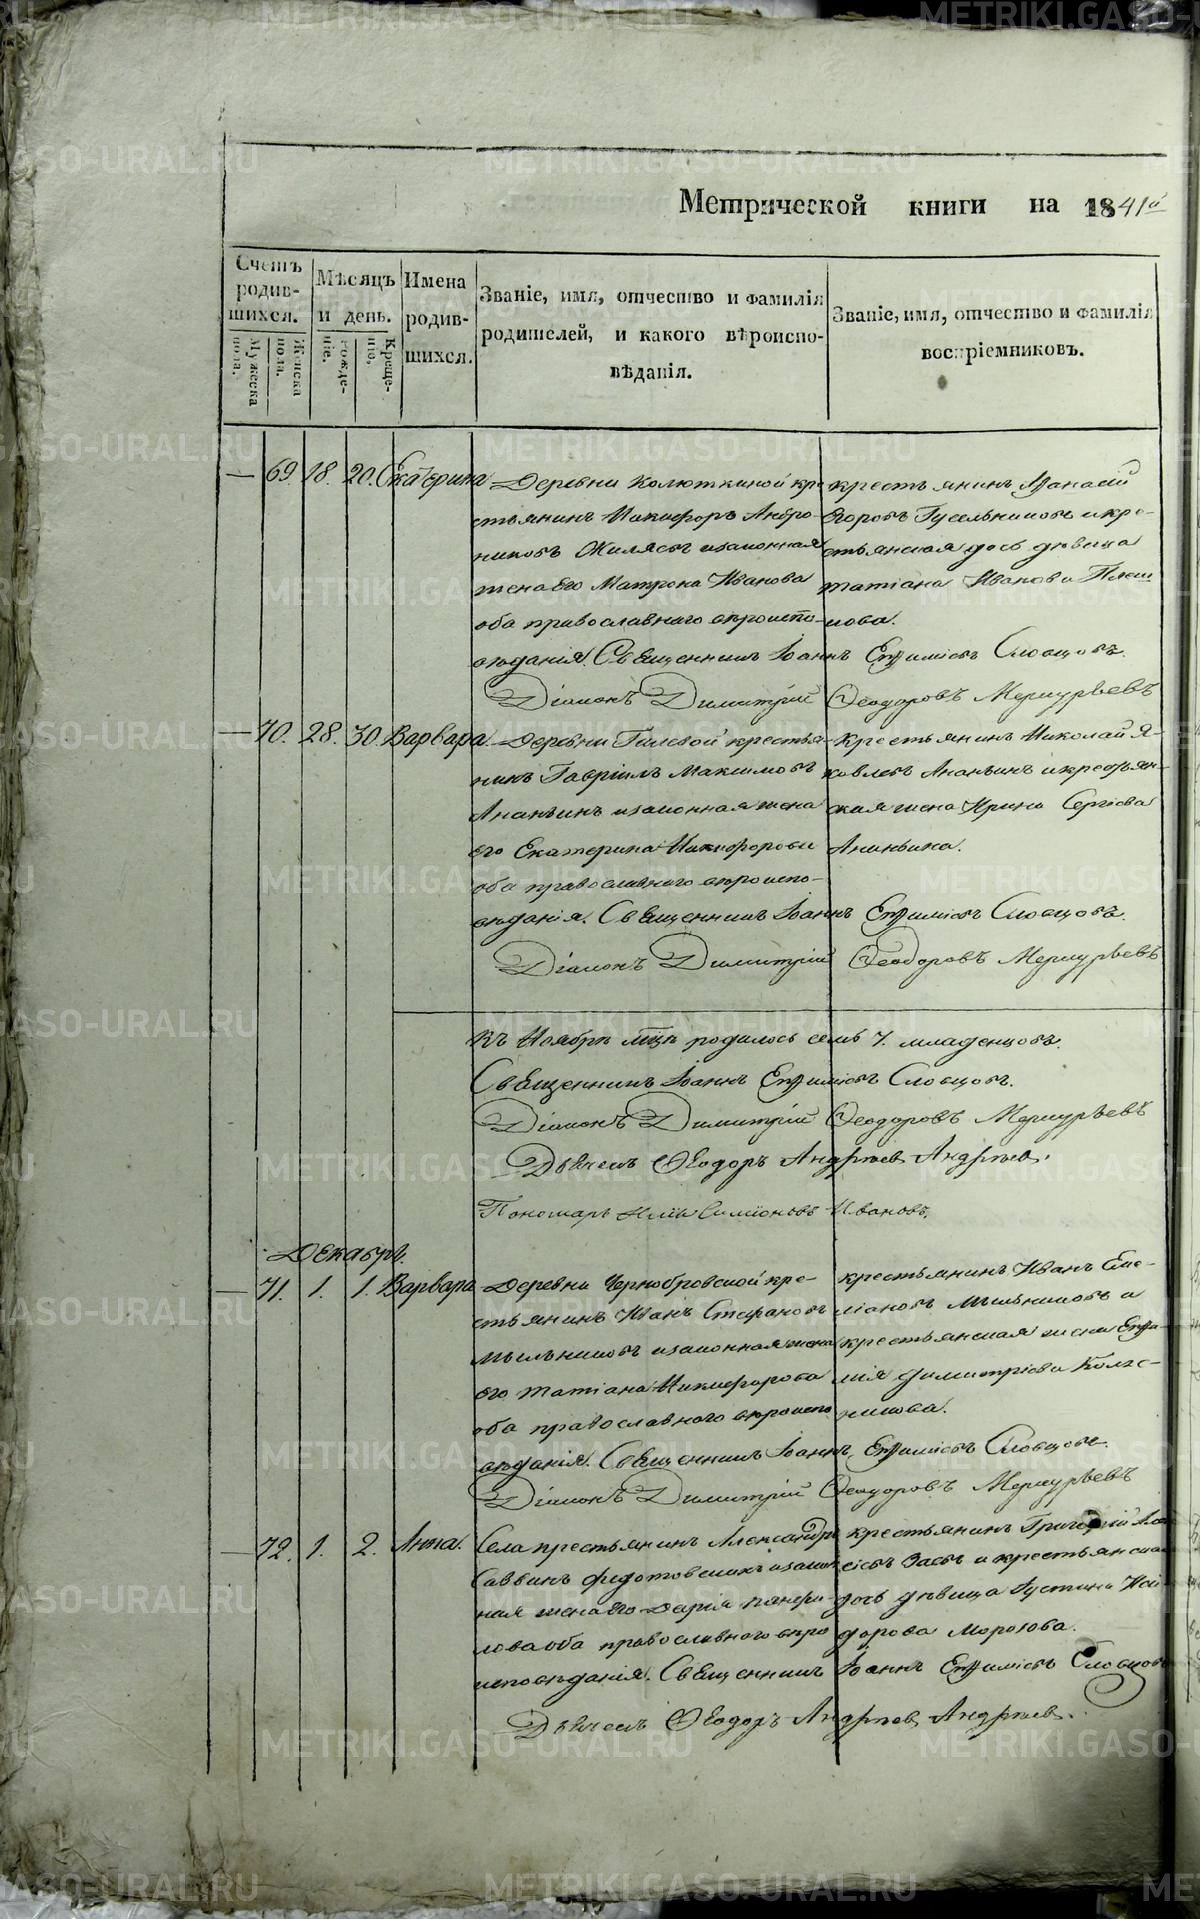 Метрической книги на 1841й
Счетъ родив-шихся.
Мужеска пола.
Женска пола.
Мѣсяцъ и день.
рожде-нiе.
Креще-нiю.
Имена родив-шихся.
Званiе, имя, отчество и фамилiя
родителей, и какого вѣроиспо-
вѣданiя.
Званiе, имя, отчество и фамилiя
воспрiемниковъ.
— 69. 18. 20. Екатерина
Деревни Колюткиной кре-
стьянинъ Никифоръ Андро-
никовъ Жилясъ и законная
жена Его Матрона Иванова
оба православнаго вѣроиспо-
вѣданiя. Священникъ Iоаннъ Евѳимiевъ Словцовъ.
крестьянинъ Аѳанасiй
Егоровъ Гусельниковъ и кре-
стьянская дочь дѣвица
татiана Иванова Плеш
кова.
Дiаконъ Димитрiй Ѳеодоровъ Меркурьевъ
— 70. 28. 30. Варвара.
Деревни Гилевой крестья-
нинъ Гаврiилъ Максимовъ
Ананьинъ и законная жена
его Екатерина Никифорова
оба православнаго вѣроиспо-
вѣданiя. Священникъ Iоаннъ Евѳимiевъ Словцовъ.
Крестьянинъ Николай Я-
ковлевъ Ананьинъ и крестьян-
ская жена Ирина Сергiева
Ананьина.
Дiаконъ Димитрiй Ѳеодоровъ Меркурьевъ
Въ Ноябрѣ мцѣ родилось семь 7. младенцовъ.
Священникъ Iоаннъ Евѳимiевъ Словцовъ.
Дiаконъ Димитрiй Ѳеодоровъ Меркурьевъ
Дьячекъ Ѳеодоръ Андреевъ Андреевъ.
Пономарь Илiя Симiоновъ Ивановъ.
Декабрь.
— 71. 1. 1. Варвара
Деревни Чернобровской кре-
стьянинъ Иванъ Стефановъ
Мыльниковъ и законная жена
его татiана Никифорова
оба православнаго вѣроиспо-
вѣданiя. Священникъ Iоаннъ Евѳимiевъ Словцовъ.
крестьянинъ Иванъ Еме-
лiановъ Мыльниковъ и
крестьянская жена Евѳи-
мiя димитрiева Колес-
никова.
Дiаконъ Димитрiй Ѳеодоровъ Меркурьевъ
— 72. 1. 2. Анна.
Села крестьянинъ Александръ
Саввинъ федотовскихъ и закон-
ная жена Его Дарiя
оба православнаго вѣро
исповѣданiя. Священникъ Iоаннъ Евѳимiевъ Словцовъ
крестьянинъ Григорiй Але
и крестьянская
дочь дѣвица Iустина Иси-
дорова Морозова.
Дьячекъ Ѳеодоръ Андреевъ Андреевъ.
METRIKI.GASO-URAL.RU